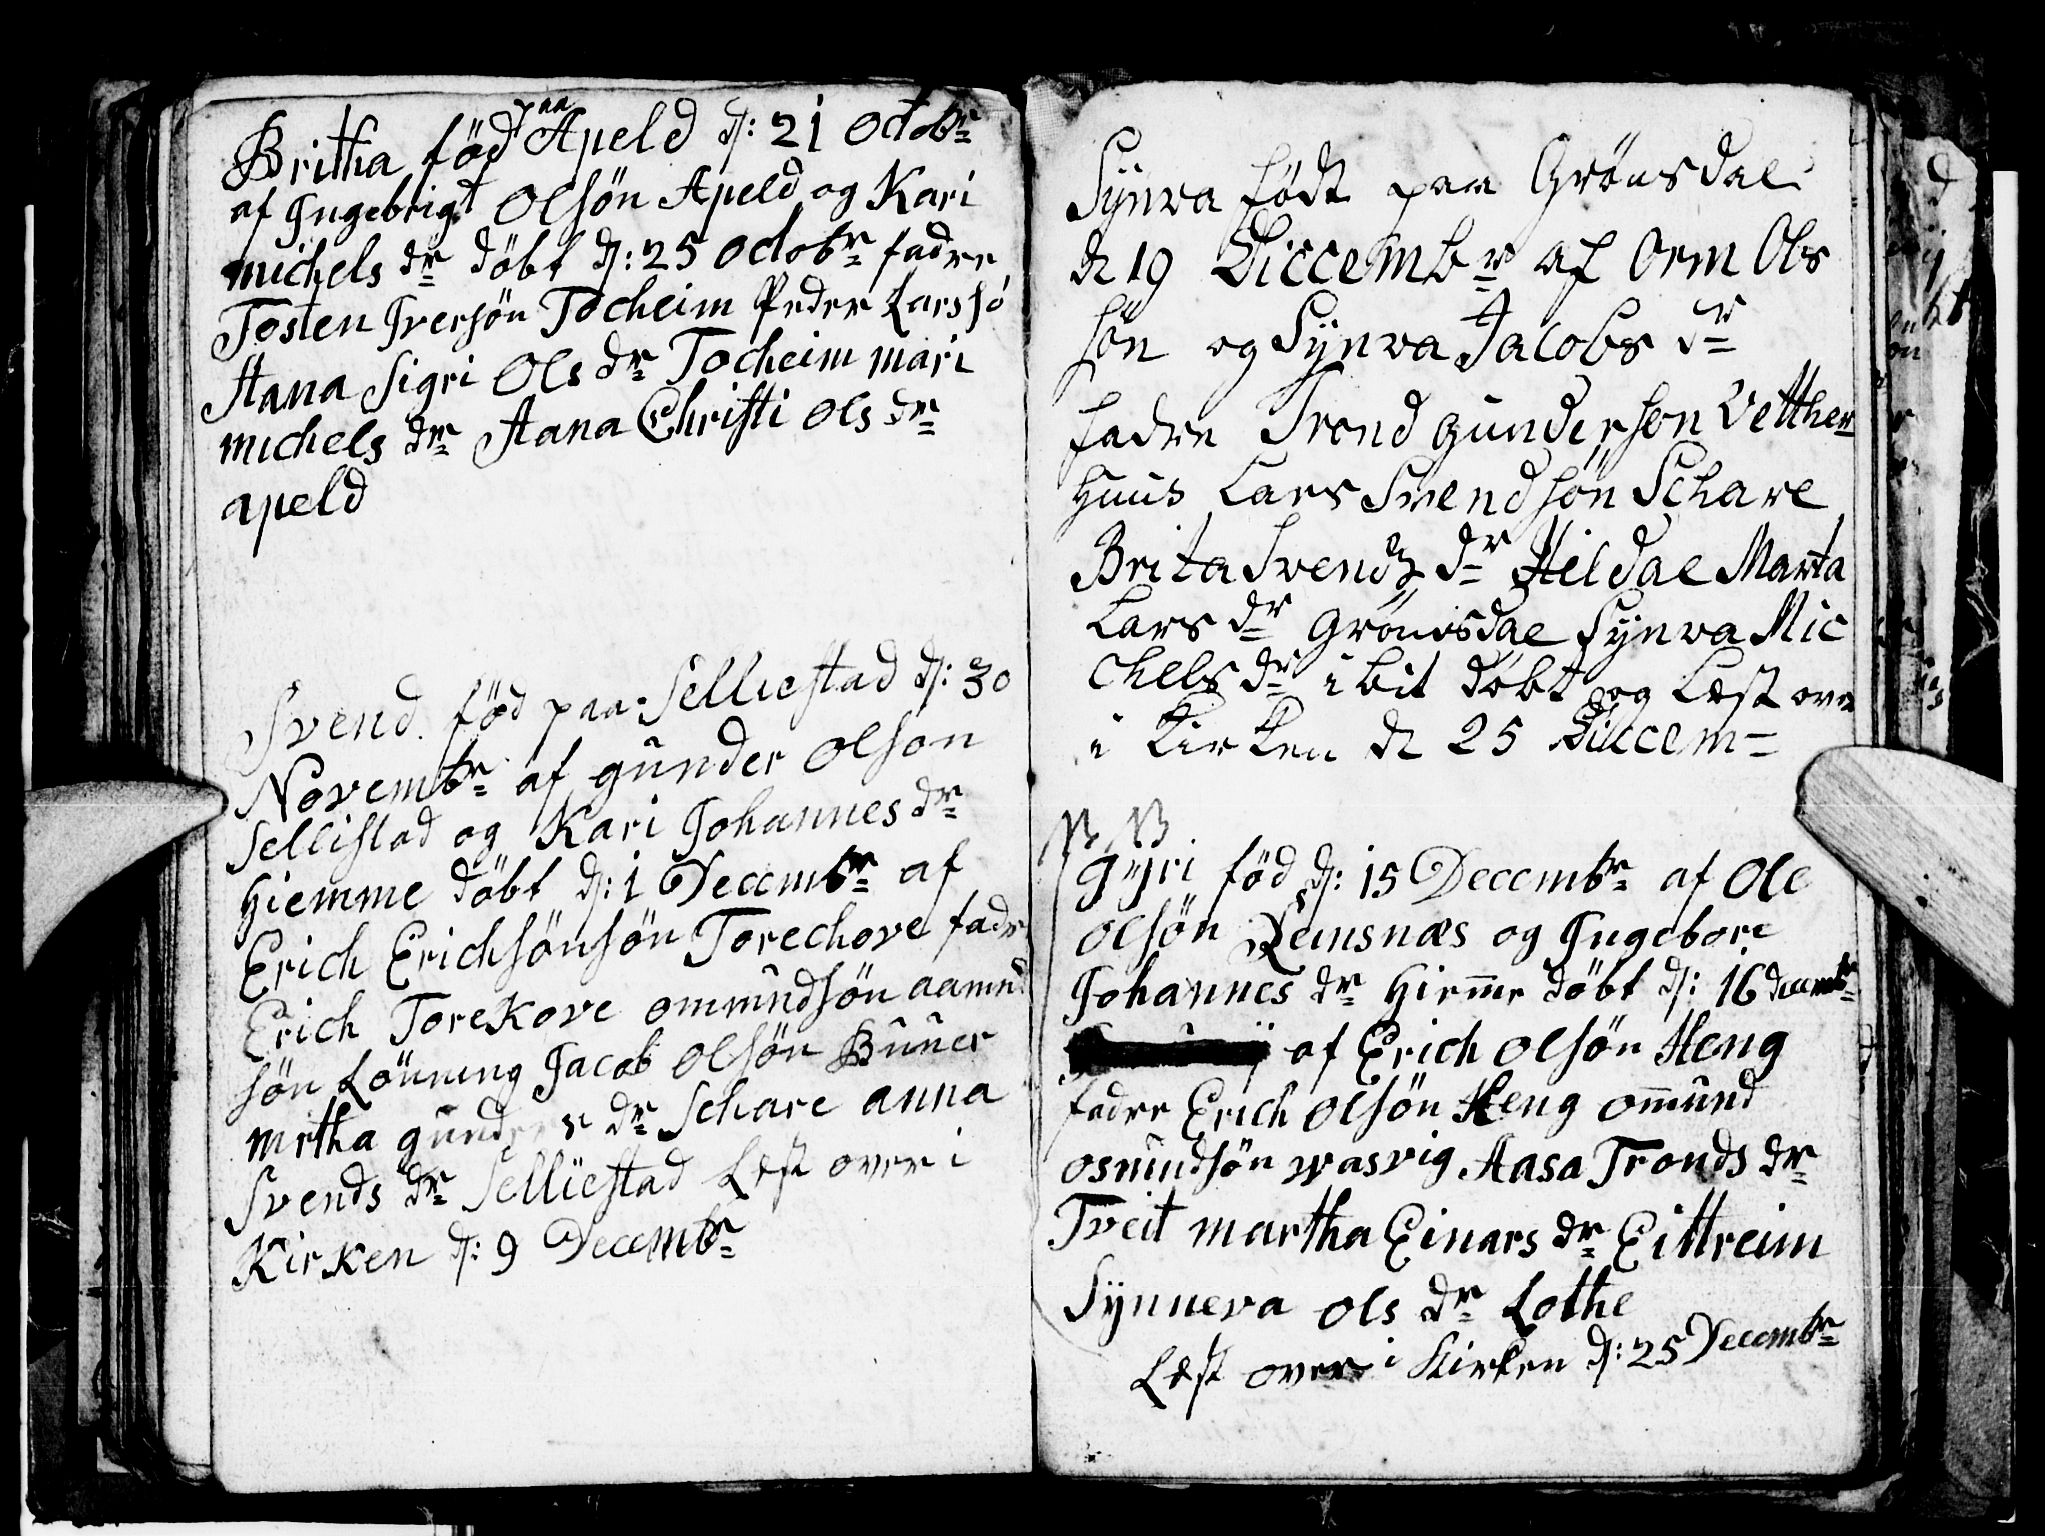 Britha fød paa Apeld d: 21 Octobr
af Ingebrigt Olsön Apeld og Kari
michels dr döbt d: 25 Octobr fadre
Tosten Iversön Tocheim Peder Lars sö
Aana Sigri Ols dr Tocheim mari
michels dr Aana Christi Ols dr
apeld
Svend fød paa Selliestad d: 30
Novembr af gunder olson
Sellistad og Kari Johannes dr
Hiemme döbt d: 1 Decembr af
Erich Erichsönsön Torechove fadr
Erich Torekove ommundsön aamnd
sön Lönning Jacob Olsön Buuer
mrtha gunders dr Schare anna
Svends dr Selliestad Læst over i
Kirken d: 9 Decembr
Synva födt paa Grönsdal
d 19 Diccembr af Orm Ols
sön og Synva Jacobs dr
fadre Trond gundersøn Vetther
huus Lars Svendsön Schare
Brita Svendz dr Hildal Marta
Lars dr Grönsdal Synva Mic
chels dr ibit döbt og Læst ove
i Kirken d 25 Diccem
NB
gyri fød d: 15 Decembr af Ole
olsön Qeinsnæs og Ingebore
Johannes dr Hiemme döbt d: 16 decembr
af Erich olsön Heng
fadre Erich olsön Heng ommund
osmundsön wasvig Aasa Tronds dr
Tveit martha Einars dr Eittreim
Synneva ols dr Lothe
Læst over i Kirken d: 25 Decembr